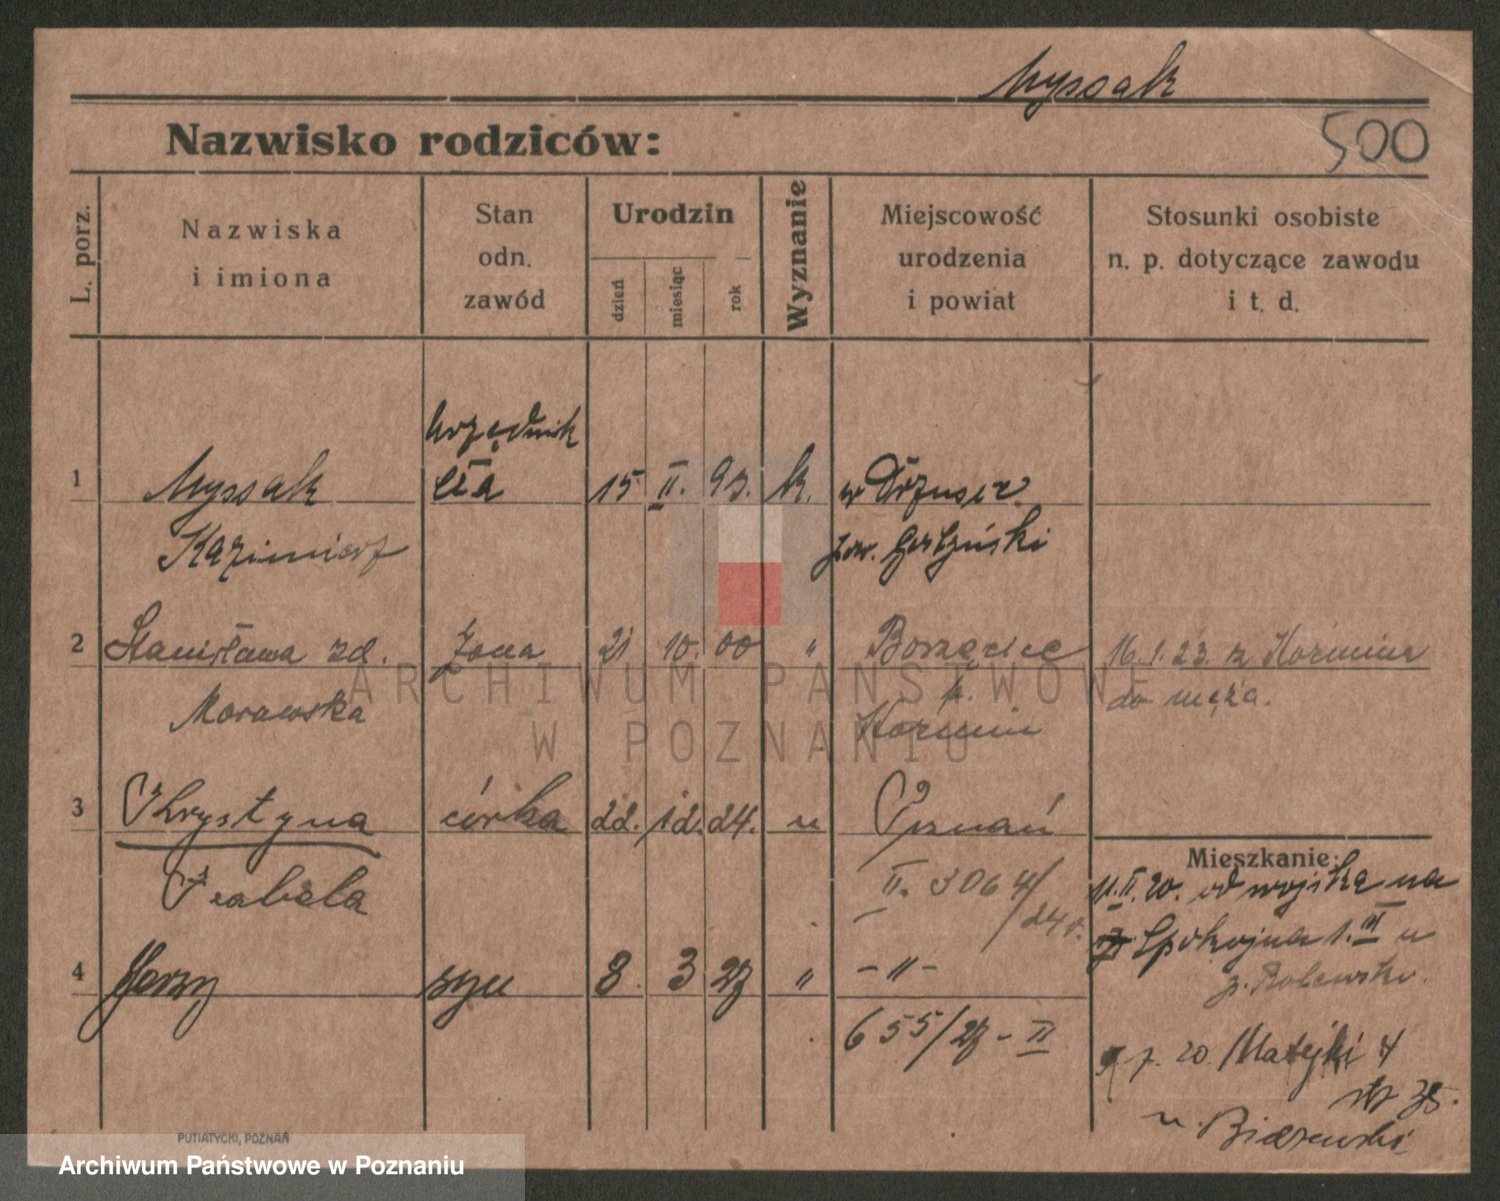 Myssak
500
Nazwisko rodziców:
L. porz.
Nazwiska
i imiona
Stan
odn.
zawód
Urodzin
dzień
miesiąc
rok
Wyznanie
Miejscowość
urodzenia
i powiat
Stosunki osobiste
n. p. dotyczące zawodu
i t. d.
urzędnik
1 Myssak cła 15 II. 93. k. w
Kazimierz pow. Gostyński
2 Stanisława zd. żona 21 10. 00 " Borzęcice 16.1.23. z Koźmina
Morawska k. do męża.
Koźmin
3 Krystyna córka 22. 12. 24. " Poznań
Mieszkanie:
Izabela II. 3064/ 11.II.20. od wojska na
24r. Spokojna 1. III u
4 Jerzy syn 8. 3 27 " - " -
p.
655/27 - II
7. 20. Matejki 4
u.
PUTIATYCKI, POZNAŃ
ARCHIWUM PAŃSTWOWE
W POZNANIU
Archiwum Państwowe w Poznaniu